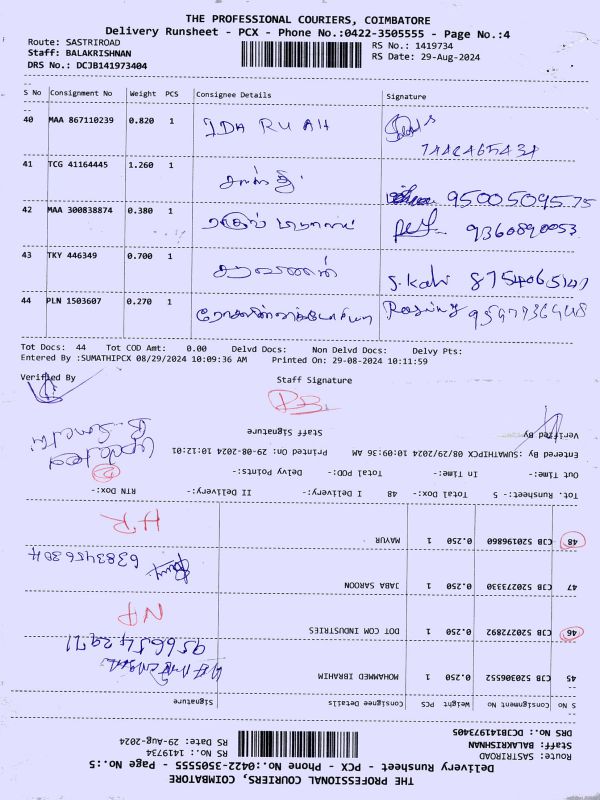 THE PROFESSIONAL COURIERS, COIMBATORE
Delivery Runsheet - PCX - Phone No.:0422-3505555 - Page No.:4
Route: SASTRIROAD
Staff: BALAKRISHNAN
DRS No.: DCJB141973404
RS No.: 1419734
RS Date: 29-Aug-2024
S No Consignment No Weight PCS Consignee Details Signature
40 MAA 867110239 0.820 1 IDA RUAH
41 TCG 41164445 1.260 1
9500509575
42 MAA 300838874 0.380 1
9360890053
43 TKY 446349 0.700 1 சரவணன்
S. Kabi 8754065147
44 PLN 1503607 0.270 1
Tot Docs: 44 Tot COD Amt: 0.00 Delvd Docs: Non Delvd Docs: Delvy Pts:
Entered By :SUMATHIPCX 08/29/2024 10:09:36 AM Printed On: 29-08-2024 10:11:59
Verified By Staff Signature
THE PROFESSIONAL COURIERS, COIMBATORE
Delivery Runsheet - PCX - Phone No.:0422-3505555 - Page No.:5
Route: SASTRIROAD
Staff: BALAKRISHNAN
DRS No.: DCJB141973405
RS No.: 1419734
RS Date: 29-Aug-2024
S No Consignment No Weight PCS Consignee Details Signature
45 CJB 520306552 0.250 1 MOHAMMED IBRAHIM
9566542971
46 CJB 520272892 0.250 1 DOT COM INDUSTRIES
47 CJB 520273330 0.250 1 JABA SAROON
6383456304
48 CJB 520196860 0.250 1 MAYUR
Tot. Runsheet:- 5 Total Dox:- 48 I Delivery:- II Delivery:- RTN DOX:-
Out Time:- In Time:- Total :POD:- Delvy Points:-
Entered By: SUMATHIPCX 08/29/2024 10:09:36 AM Printed On: 29-08-2024 10:12:01
Verified By Staff Signature
updated